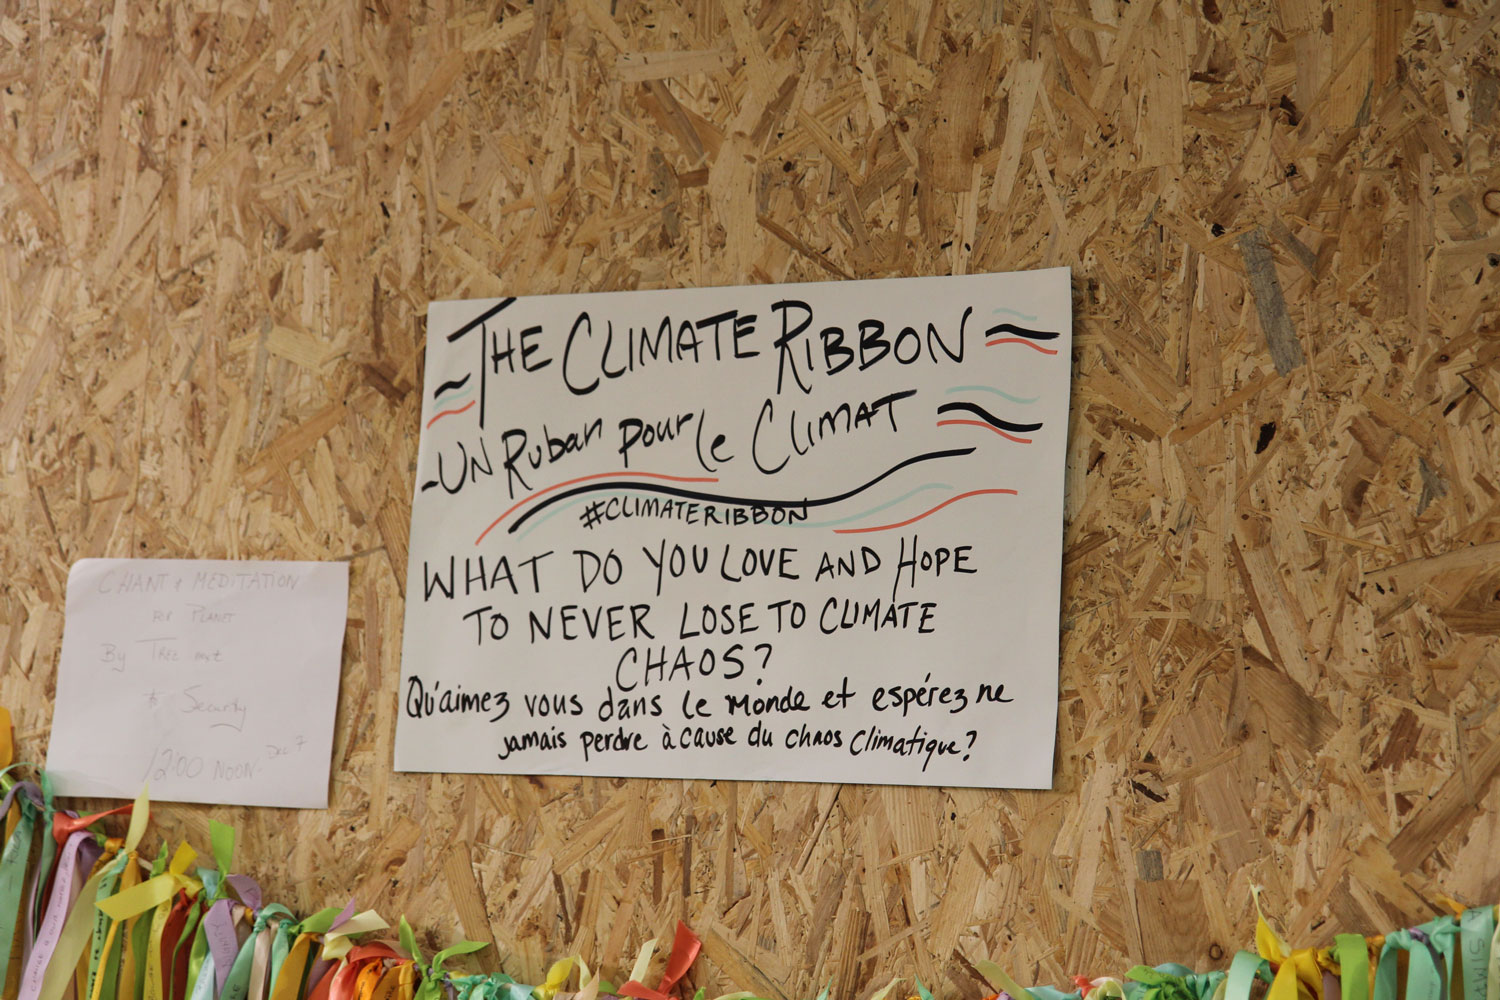 THE CLIMATE RIBBON
-UN Ruban pour le CLIMAT
#CLIMATERIBBON
WHAT DO YOU LOVE AND HOPE
TO NEVER LOSE TO CLIMATE
CHAOS?
Qu'aimez vous dans le monde et espérez ne
jamais perdre à cause du chaos climatique?
CHANT & MEDITATION
FOR PLANET
By TREE next
to Security
12:00 NOON - Dec 7